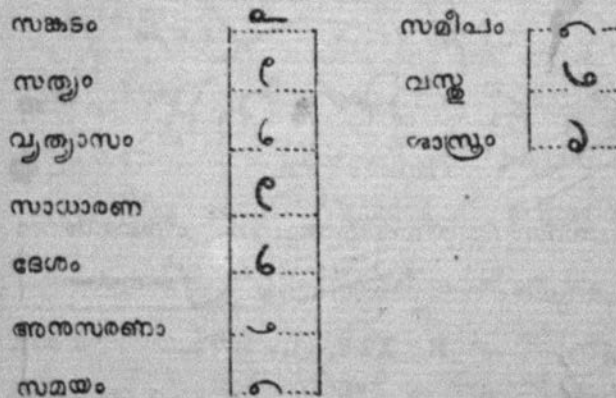 സങ്കടം
സത്യം
വ്യത്യാസം
സാധാരണ
ദേശം
അനുസരണാ
സമയം
സമീപം
വസ്തു
ശാസ്ത്രം